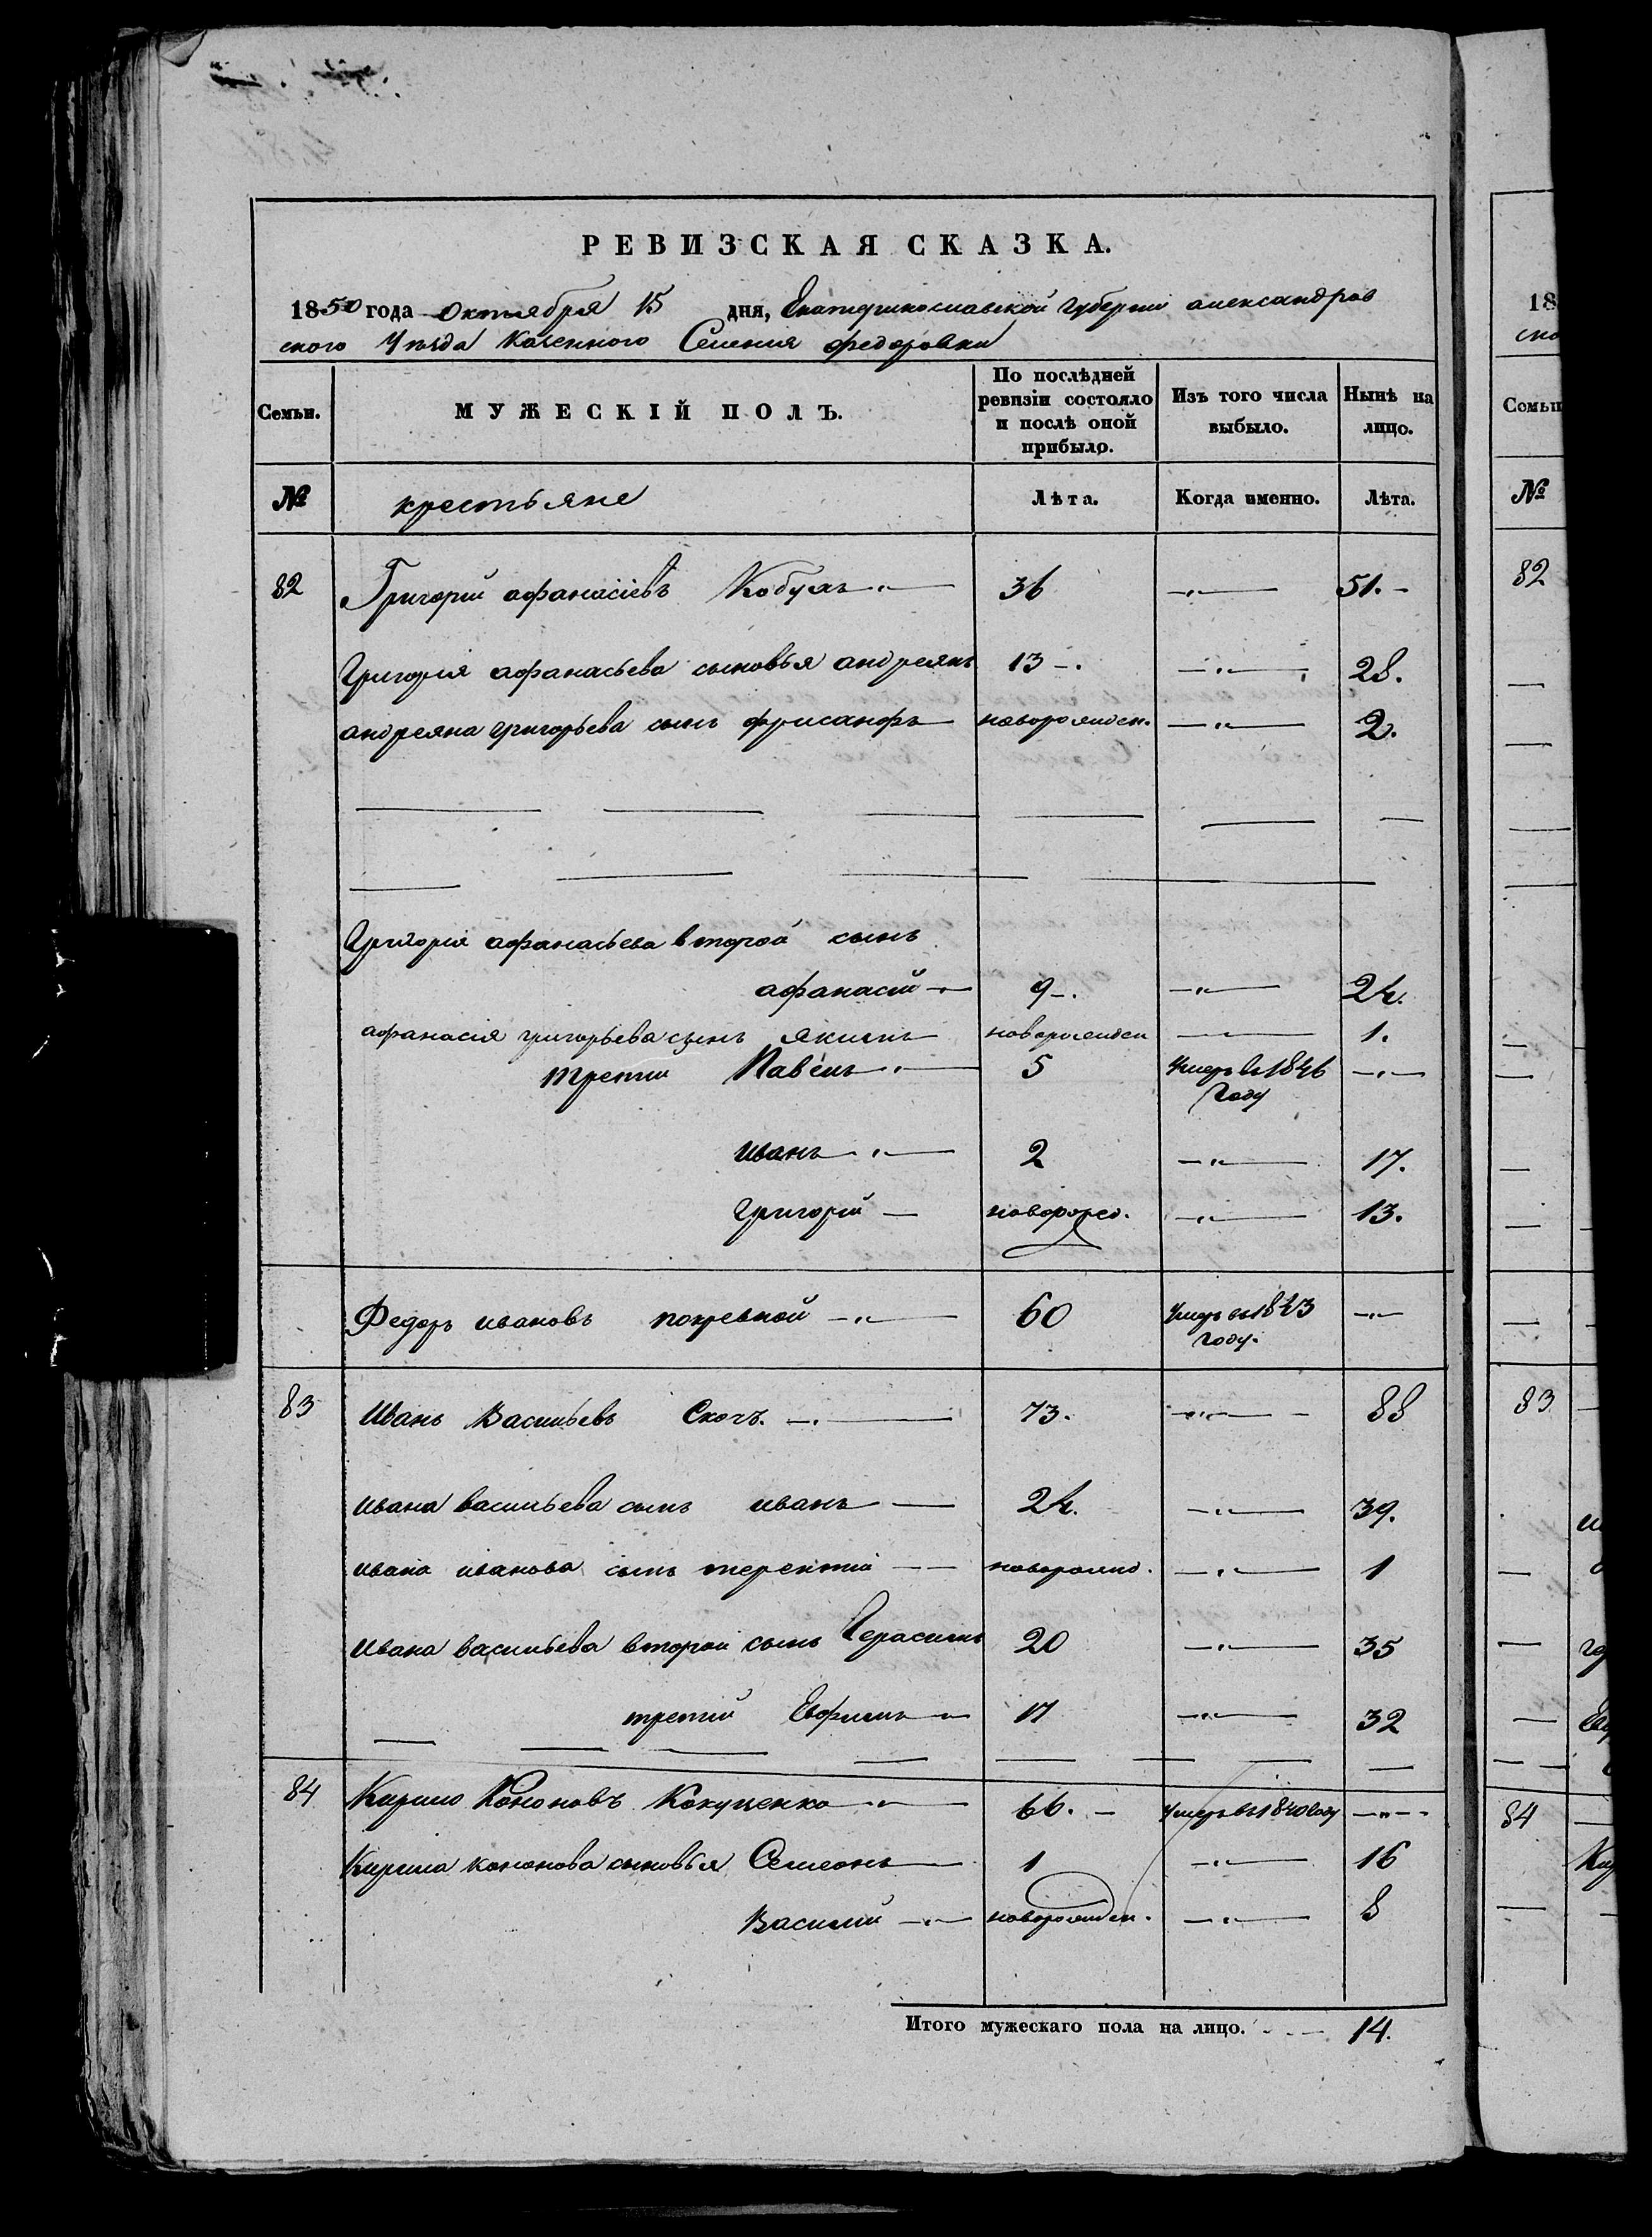 РЕВИЗСКАЯ СКАЗКА.
1850 года октября 15 дня, Екатеринославской губернии александров
ского Уезда Казенного Селения федоровки
Семьи. МУЖЕСКІЙ ПОЛЪ. По послѣдней ревизіи состояло и послѣ оной прибыло. Изъ того числа выбыло. Нынѣ на лицо.
№ крестьяне Лѣта. Когда именно. Лѣта.
82 Григорий афанасіевъ Кобула 36 —„— 51.-
Григория афанасьева сыновья андреянъ 13 -. —„— 28.
андреяна григорьева сынъ фрисанфъ новорожден. —„— 2.
Григория афанасьева второй сынъ
афанасий 9-. —„— 24.
афанасия григорьева сынъ якимъ новорожден — 1.
третий Павелъ 5 Умеръ въ 1846 —„—
году
иванъ 2 —„— 17.
григорий новорож. —„— 13.
Федоръ ивановъ 60 Умеръ въ 1843 —„—
году.
83 Иванъ Васильевъ Скочъ. 73. —„— 88
ивана васильева сынъ иванъ 24. —„— 39.
ивана иванова сынъ терентий новорожд. —„— 1
ивана васильева второй сынъ Герасимъ 20 —„— 35
третий Евфимъ 17 —„— 32
84 Кирило Кононовъ Кокушенко 66. - Умеръ въ 1840 году —„—
Кирила кононова сыновья Семеонъ 1 —„— 16
Василий новорожден. —„— 8
Итого мужескаго пола на лицо. 14.
18
ско
Семьи
№
82
83
84